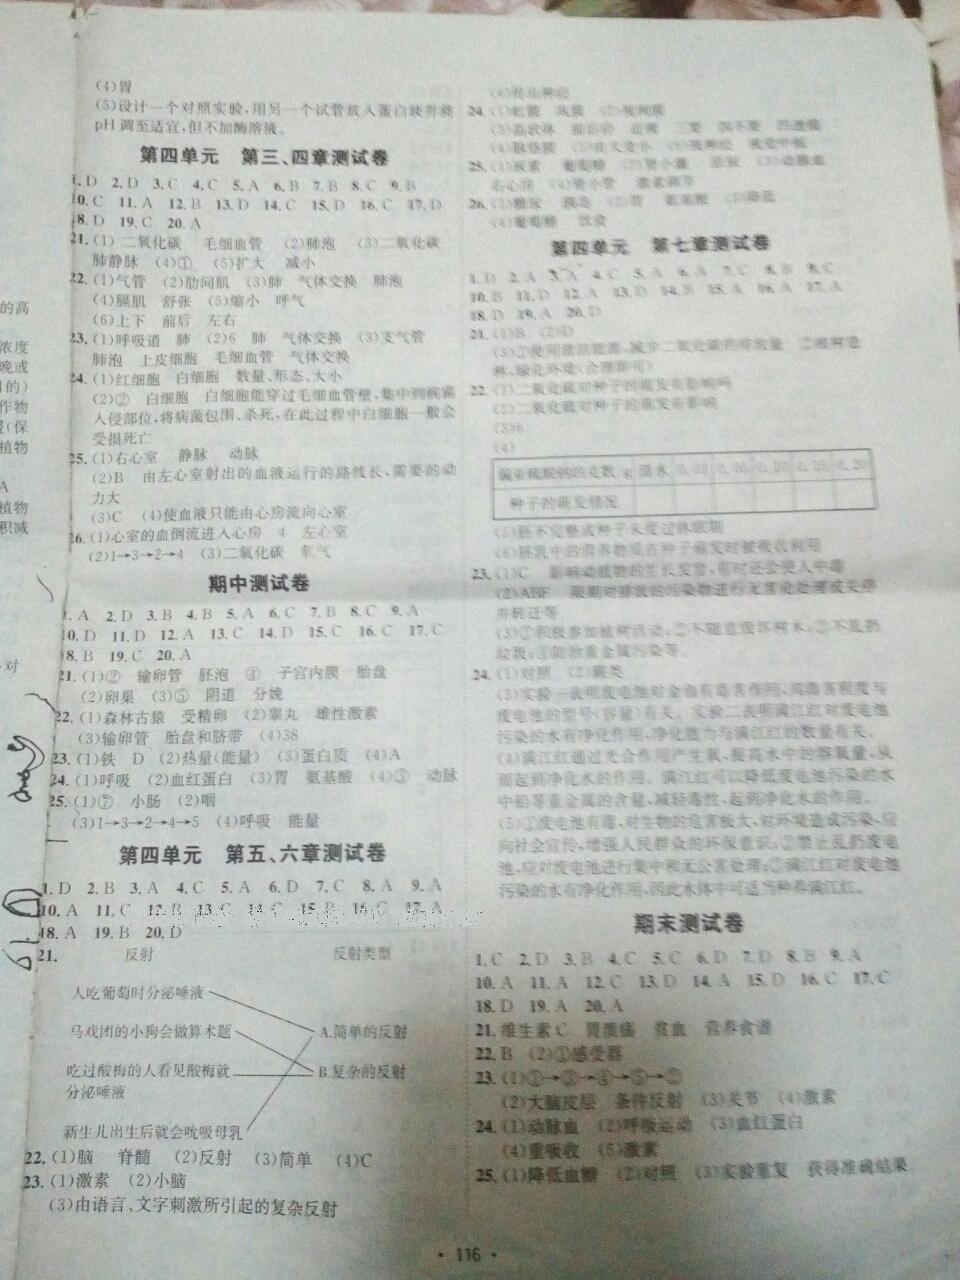 (4)胃
(5)设计一个对照实验,用另一个试管放入蛋白
pH 调至适宜,但不加酶溶液。
第四单元 第三、四章测试卷
1. D 2. D 3. C 4. C 5. A 6. B 7. B 8. C 9. B
10. C 11. A 12. B 13. D 14. C 15. D 16. C 17. D
18. D 19. C 20. A
21. (1)二氧化碳 毛细血管 (2)肺泡 (3)二氧化碳
肺静脉 (4)① (5)扩大 减小
22. (1)气管 (2)肋间肌 (3)肺 气体交换 肺泡
(4)膈肌 舒张 (5)缩小 呼气
(6)上下 前后 左右
23. (1)呼吸道 肺 (2)6 肺 气体交换 (3)支气管
肺泡 上皮细胞 毛细血管 气体交换
24. (1)红细胞 白细胞 数量、形态、大小
(2)② 白细胞 白细胞能穿过毛细血管壁,集中到病菌
入侵部位,将病菌包围、杀死,在此过程中白细胞一般会
受损死亡
25. (1)右心室 静脉 动脉
(2)B 由左心室射出的血液运行的路线长,需要的动
力大
(3)C (4)使血液只能由心房流向心室
26. (1)心室的血倒流进入心房 4 左心室
(2)1→3→2→4 (3)二氧化碳 氧气
期中测试卷
1. A 2. D 3. B 4. B 5. A 6. C 7. B 8. C 9. A
10. D 11. D 12. A 13. C 14. D 15. C 16. C 17. C
18. B 19. C 20. A
21. (1)② 输卵管 胚泡 ④ 子宫内膜 胎盘
(2)卵巢 (3)⑤ 阴道 分娩
22. (1)森林古猿 受精卵 (2)睾丸 雄性激素
(3)输卵管 胎盘和脐带 (4)38
23. (1)铁 D (2)热量(能量) (3)蛋白质 (4)A
24. (1)呼吸 (2)血红蛋白 (3)胃 氨基酸 (4)③ 动脉
25. (1)⑦ 小肠 (2)咽
(3)1→3→2→4→5 (4)呼吸 能量
第四单元 第五、六章测试卷
1. D 2. B 3. A 4. C 5. A 6. D 7. C 8. A 9. A
10. A 11. C 12. B 13. C 14. C 15. C 16. C 17. A
18. A 19. B 20. D
21. 反射 反射类型
人吃葡萄时分泌唾液
马戏团的小狗会做算术题 A.简单的反射
吃过酸梅的人看见酸梅就 B.复杂的反射
分泌唾液
新生儿出生后就会吮吸母乳
22. (1)脑 脊髓 (2)反射 (3)简单 (4)C
23. (1)激素 (2)小脑
(3)由语言、文字刺激所引起的复杂反射
24. (1)虹膜
25. (1)
26. (1)糖尿 胰岛
(4)葡萄糖 饮食
第四单元 第七章测试卷
1. D 2. A 3. A 4. C 5. A 6. A 7. C 8. B 9. C
10. B 11. D 12. A 13. D 14. D 15. B 16. A 17. A
18. D 19. D 20. D
21. (1)B (2)D
(3)①使用清洁能源,减少二氧化碳的排放量 ②植树造
林,绿化环境(合理即可)
22. (1)二氧化硫对种子的萌发有影响吗
(2)二氧化硫对种子的萌发有影响
(3)6
(4)
种子的萌发情况
(5)胚不完整或种子未度过休眠期
(6)胚乳中的营养物质在种子萌发时被吸收利用
23. (1)C 影响动植物的生长发育,有时还会使人中毒
(2)ABF 限期对排放的污染物进行无害化处理或关停
并转迁等
(3)①积极参加植树活动;②不随意毁坏树木;③不乱扔
垃圾;④防治重金属污染等。
24. (1)对照 (2)藻类
(3)实验一表明废电池对金鱼有毒害作用,其毒害程度与
废电池的型号(容量)有关。实验二表明满江红对废电池
污染的水有净化作用,净化能力与满江红的数量有关。
(4)满江红通过光合作用产生氧,提高水中的溶氧量,从
而起到净化水的作用。满江红可以降低废电池污染的
水中铅等重金属的含量,减轻毒性,起到净化水的作用。
(5)①废电池有毒,对生物的危害极大,对环境造成污染,应
向社会宣传,增强人民群众的环保意识;②禁止乱扔废电
池,应对废电池进行集中和无公害处理;③满江红对废电池
污染的水有净化作用,因此水体中可适当种养满江红。
期末测试卷
1. C 2. D 3. B 4. C 5. C 6. D 7. D 8. B 9. A
10. A 11. A 12. C 13. C 14. A 15. C 16. C 17. C
18. D 19. A 20. A
21. 维生素 C 胃溃疡 贫血 营养食谱
22. B (2)①感受器
(2)大脑皮层 条件反射 (3)关节 (4)激素
24. (1)动脉血 (2)呼吸运动 (3)血红蛋白
(4)重吸收 (5)激素
25. (1)降低血糖 (2)对照 (3)实验重复 获得准确结果
· 116 ·